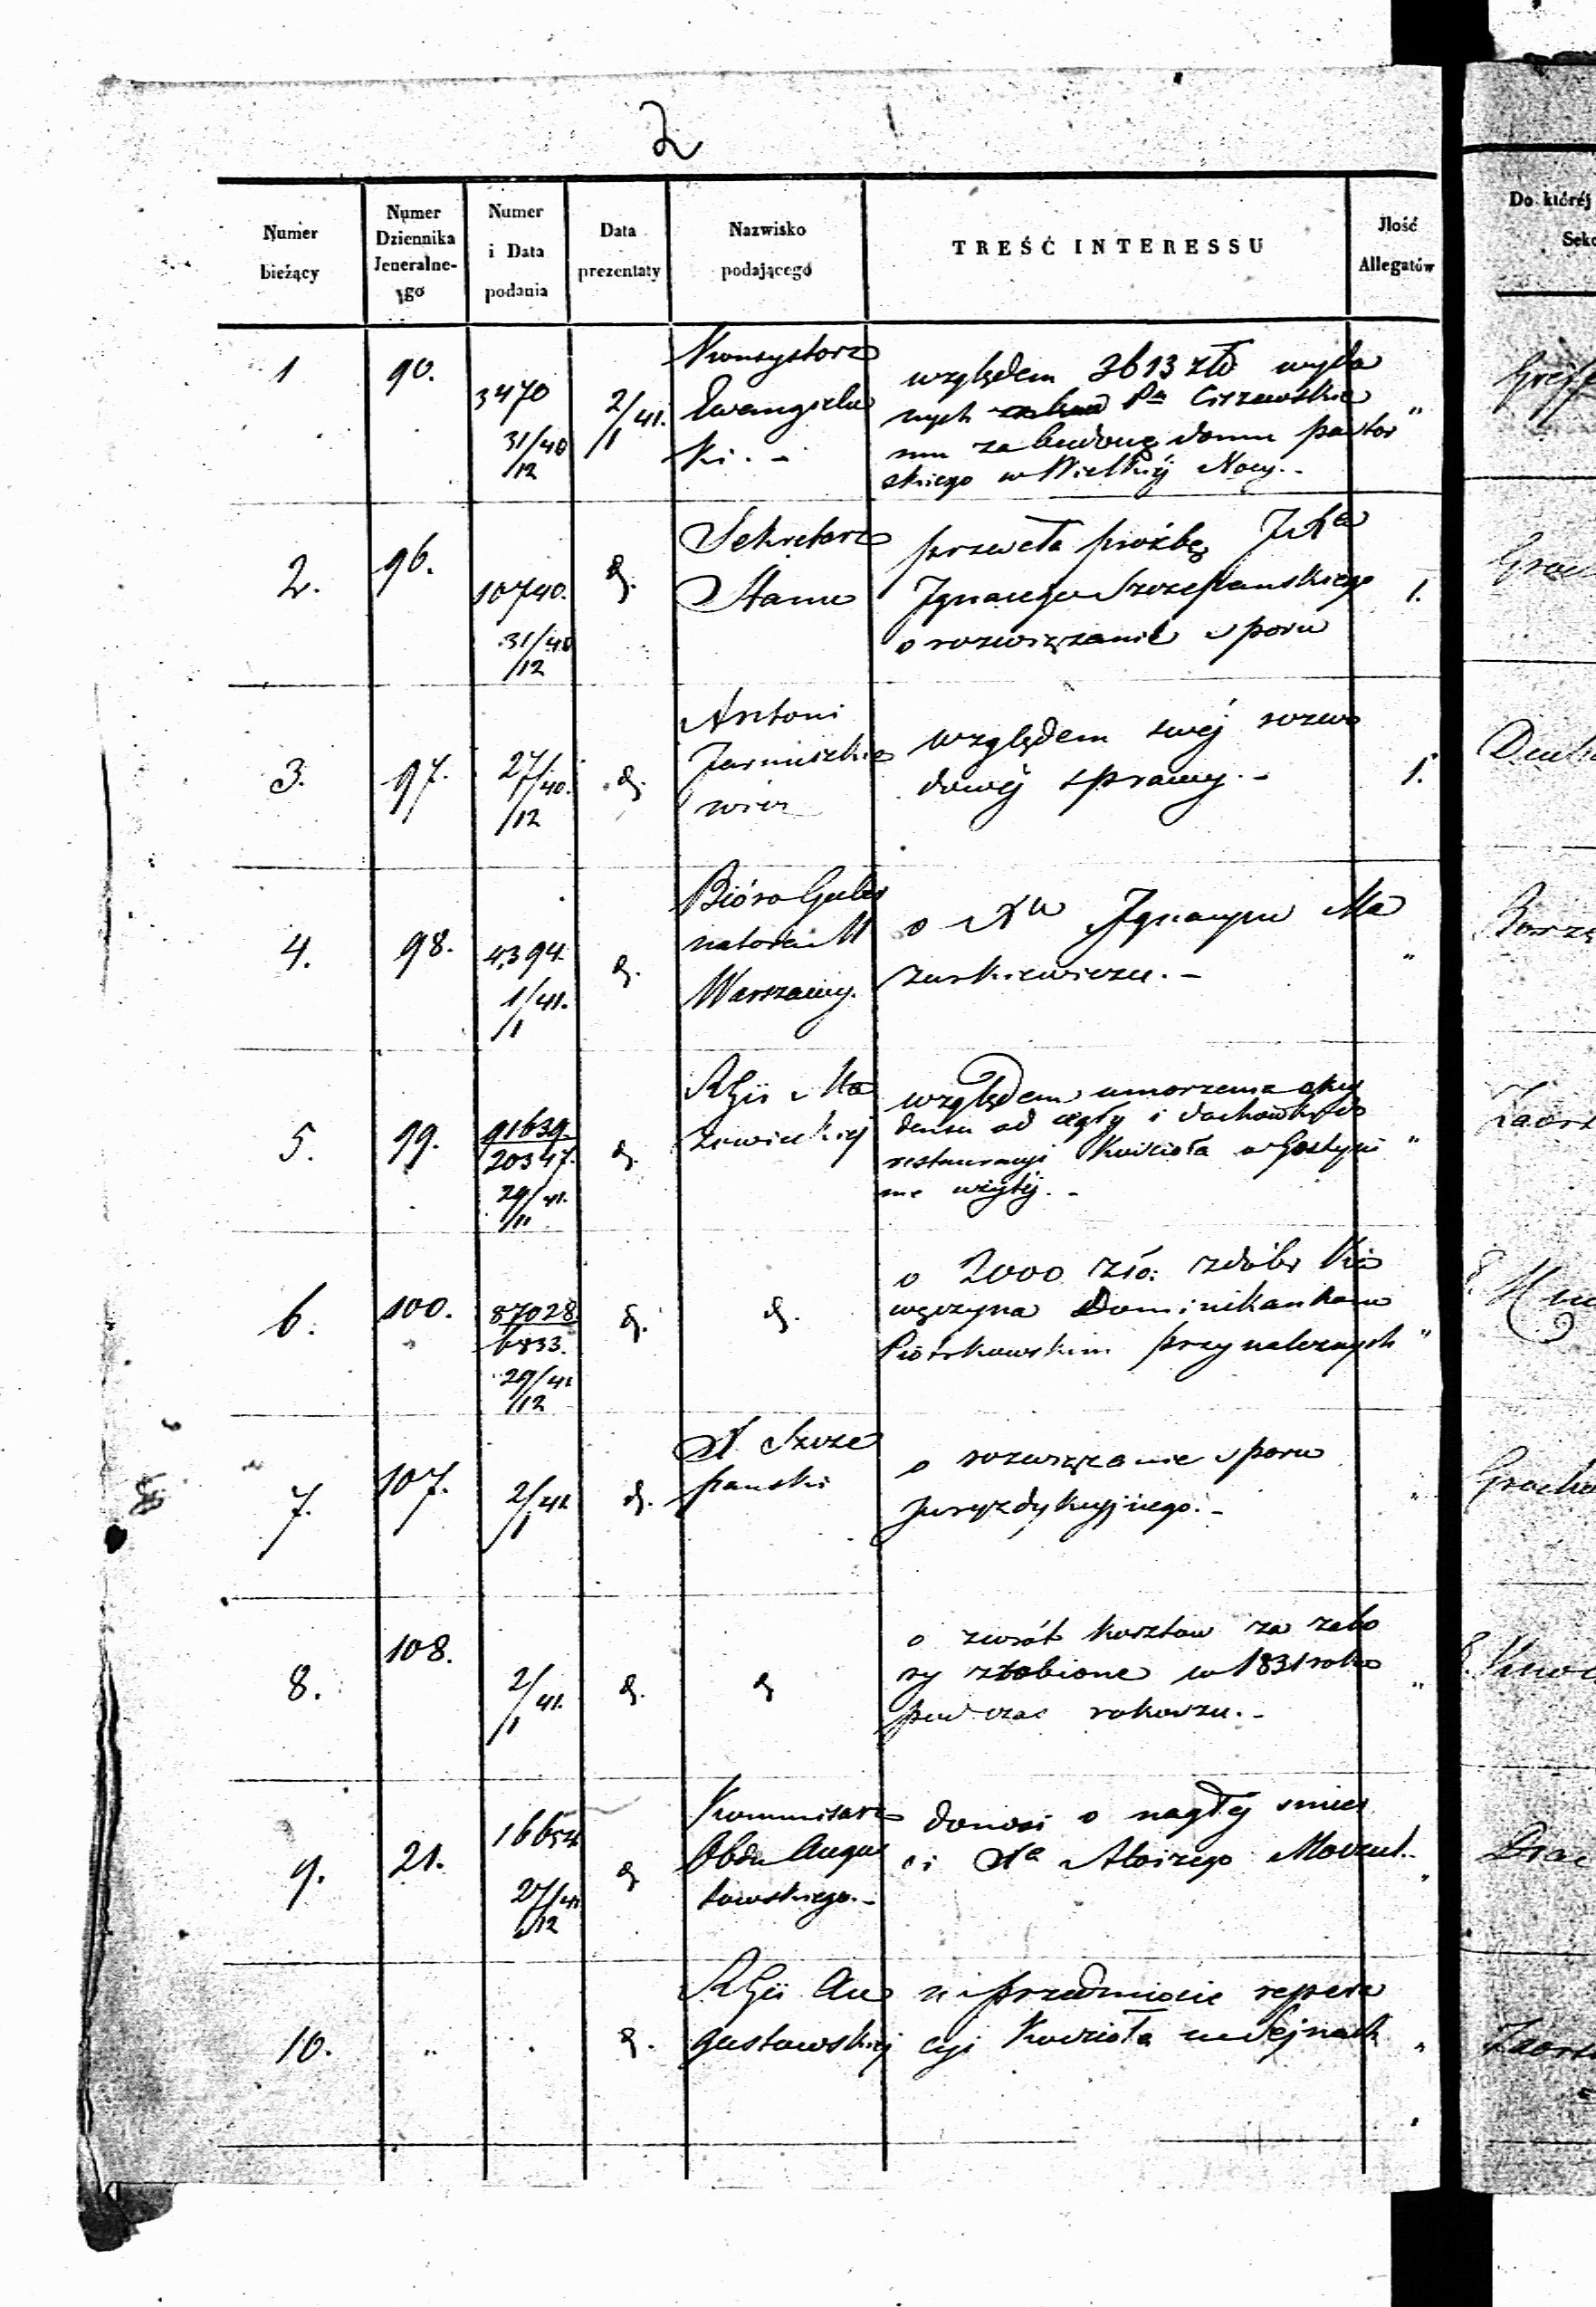 2
Numer bieżący
Numer Dziennika Jeneralne-go
Numer i Data podania
Data prezentaty
Nazwisko podającego
TREŚĆ INTERESSU
Ilość Allegatów
Do któréj
Sek
1 90. 3470 31/12/40 2/1/41.
Konsystorz
Ewangielic
ki. -
względem 3613 zł wyda
nych Pa Ciszewskie
mu za budowę domu pastor "
skiego w Wielkiéj Nocy. -
2. 96. 10740. 31/12/40 d.
Sekretarz
Stanu
przeseła prośbę JXa
Ignacego Szczepańskiego 1.
o rozwiązanie sporu
3. 97. 27/12/40. d.
Antoni
Jarmuszkie
wicz
względem swéj rozwo
dowéj sprawy. - 1.
4. 98. 4394. 1/1/41. d.
Bióro Guber
natora M
Warszawy.
o Xu Ignacym Ma
zurkiewiczu. - "
5. 99. 91639. 20347. 29/11/41. d.
RGii Ma
zowieckiej
względem umorzenia
densu od cegły i dachówki do
restauracyi Kościoła w Gostyni "
nie użytéj. -
6. 100. 87028. 6833. 29/12/41 d. d.
o 2000 zło: z dóbr
Dominikankom
Piotrkowskim przynależnych "
7. 107. 2/1/41 d.
X Szcze
pański
o rozwiązanie sporu
Juryzdykcyjnego. - "
8. 108. 2/1/41. d. d
o zwrót kosztów za zabo
ry zrobione w 1831 roku "
podczas rokoszu. -
9. 21. 27/12/41 d
Kommisarz
Obdu Augus
towskiego. -
donosi o nagłéj śmier
ci Xa Aloizego "
10. " . d.
RGii Au
gustowskiéj
w przedmiocie repera
cyi Kościoła w Sejnach "